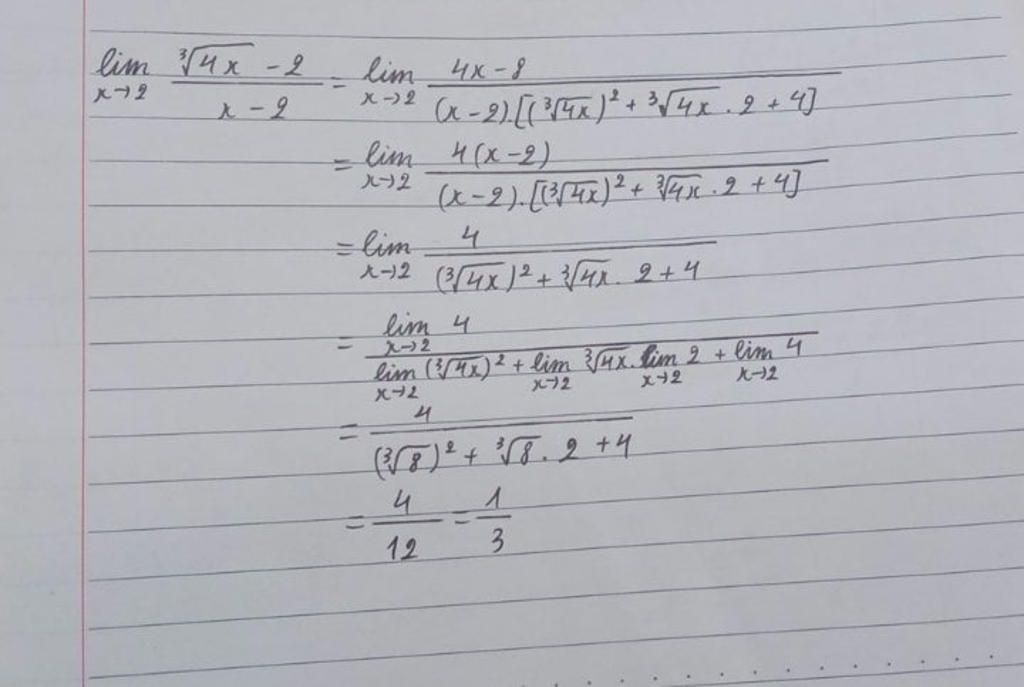 lim x→2 (∛(4x) - 2)/(x - 2) = lim x→2 (4x - 8)/((x - 2).[(∛(4x))² + ∛(4x) . 2 + 4])
= lim x→2 4(x - 2)/((x - 2).[(∛(4x))² + ∛(4x) . 2 + 4])
= lim x→2 4/((∛(4x))² + ∛(4x) . 2 + 4)
= (lim x→2 4)/(lim x→2 (∛(4x))² + lim x→2 ∛(4x) . lim x→2 2 + lim x→2 4)
= 4/((∛8)² + ∛8 . 2 + 4)
= 4/12 = 1/3